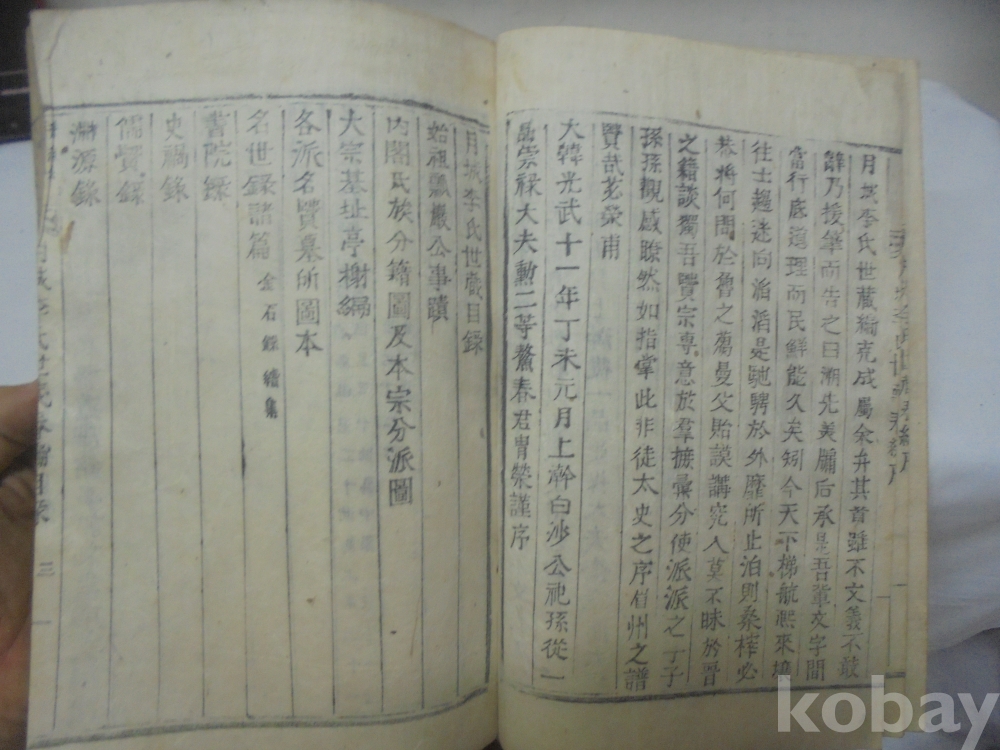 月城李氏世蔵編克成屬余弁其首雖不文義不敢
辭乃援筆而告之曰潮先美牖后承是吾輩文字間
當行底道理而民鮮能久矣矧今天下梯航熙來壤
往士趨迷向滔滔是馳騁於外靡所止泊則桑梓必
恭將何間於魯之蔦曼父貽謨講究人莫不昧於晋
之籍談獨吾賢宗專意於羣捃彙分使派派之丁子
孫孫觀感瞭然如指掌此非徒太史之序伯州之譜
賢哉茗榮甫
大韓光武十一年丁未元月上澣白沙公祀孫從一
品崇祿大夫勳二等鰲春君胄榮謹序
月城李氏世蔵目録
始祖瓢巖公事蹟
內閣氏族分籍圖及本宗分派圖
大宗基址亭榭編
各派名賢墓所圖本
名世録諸篇 金石録續集
書院録
史禍録
儒賢録
淵源錄
三
一
kobay